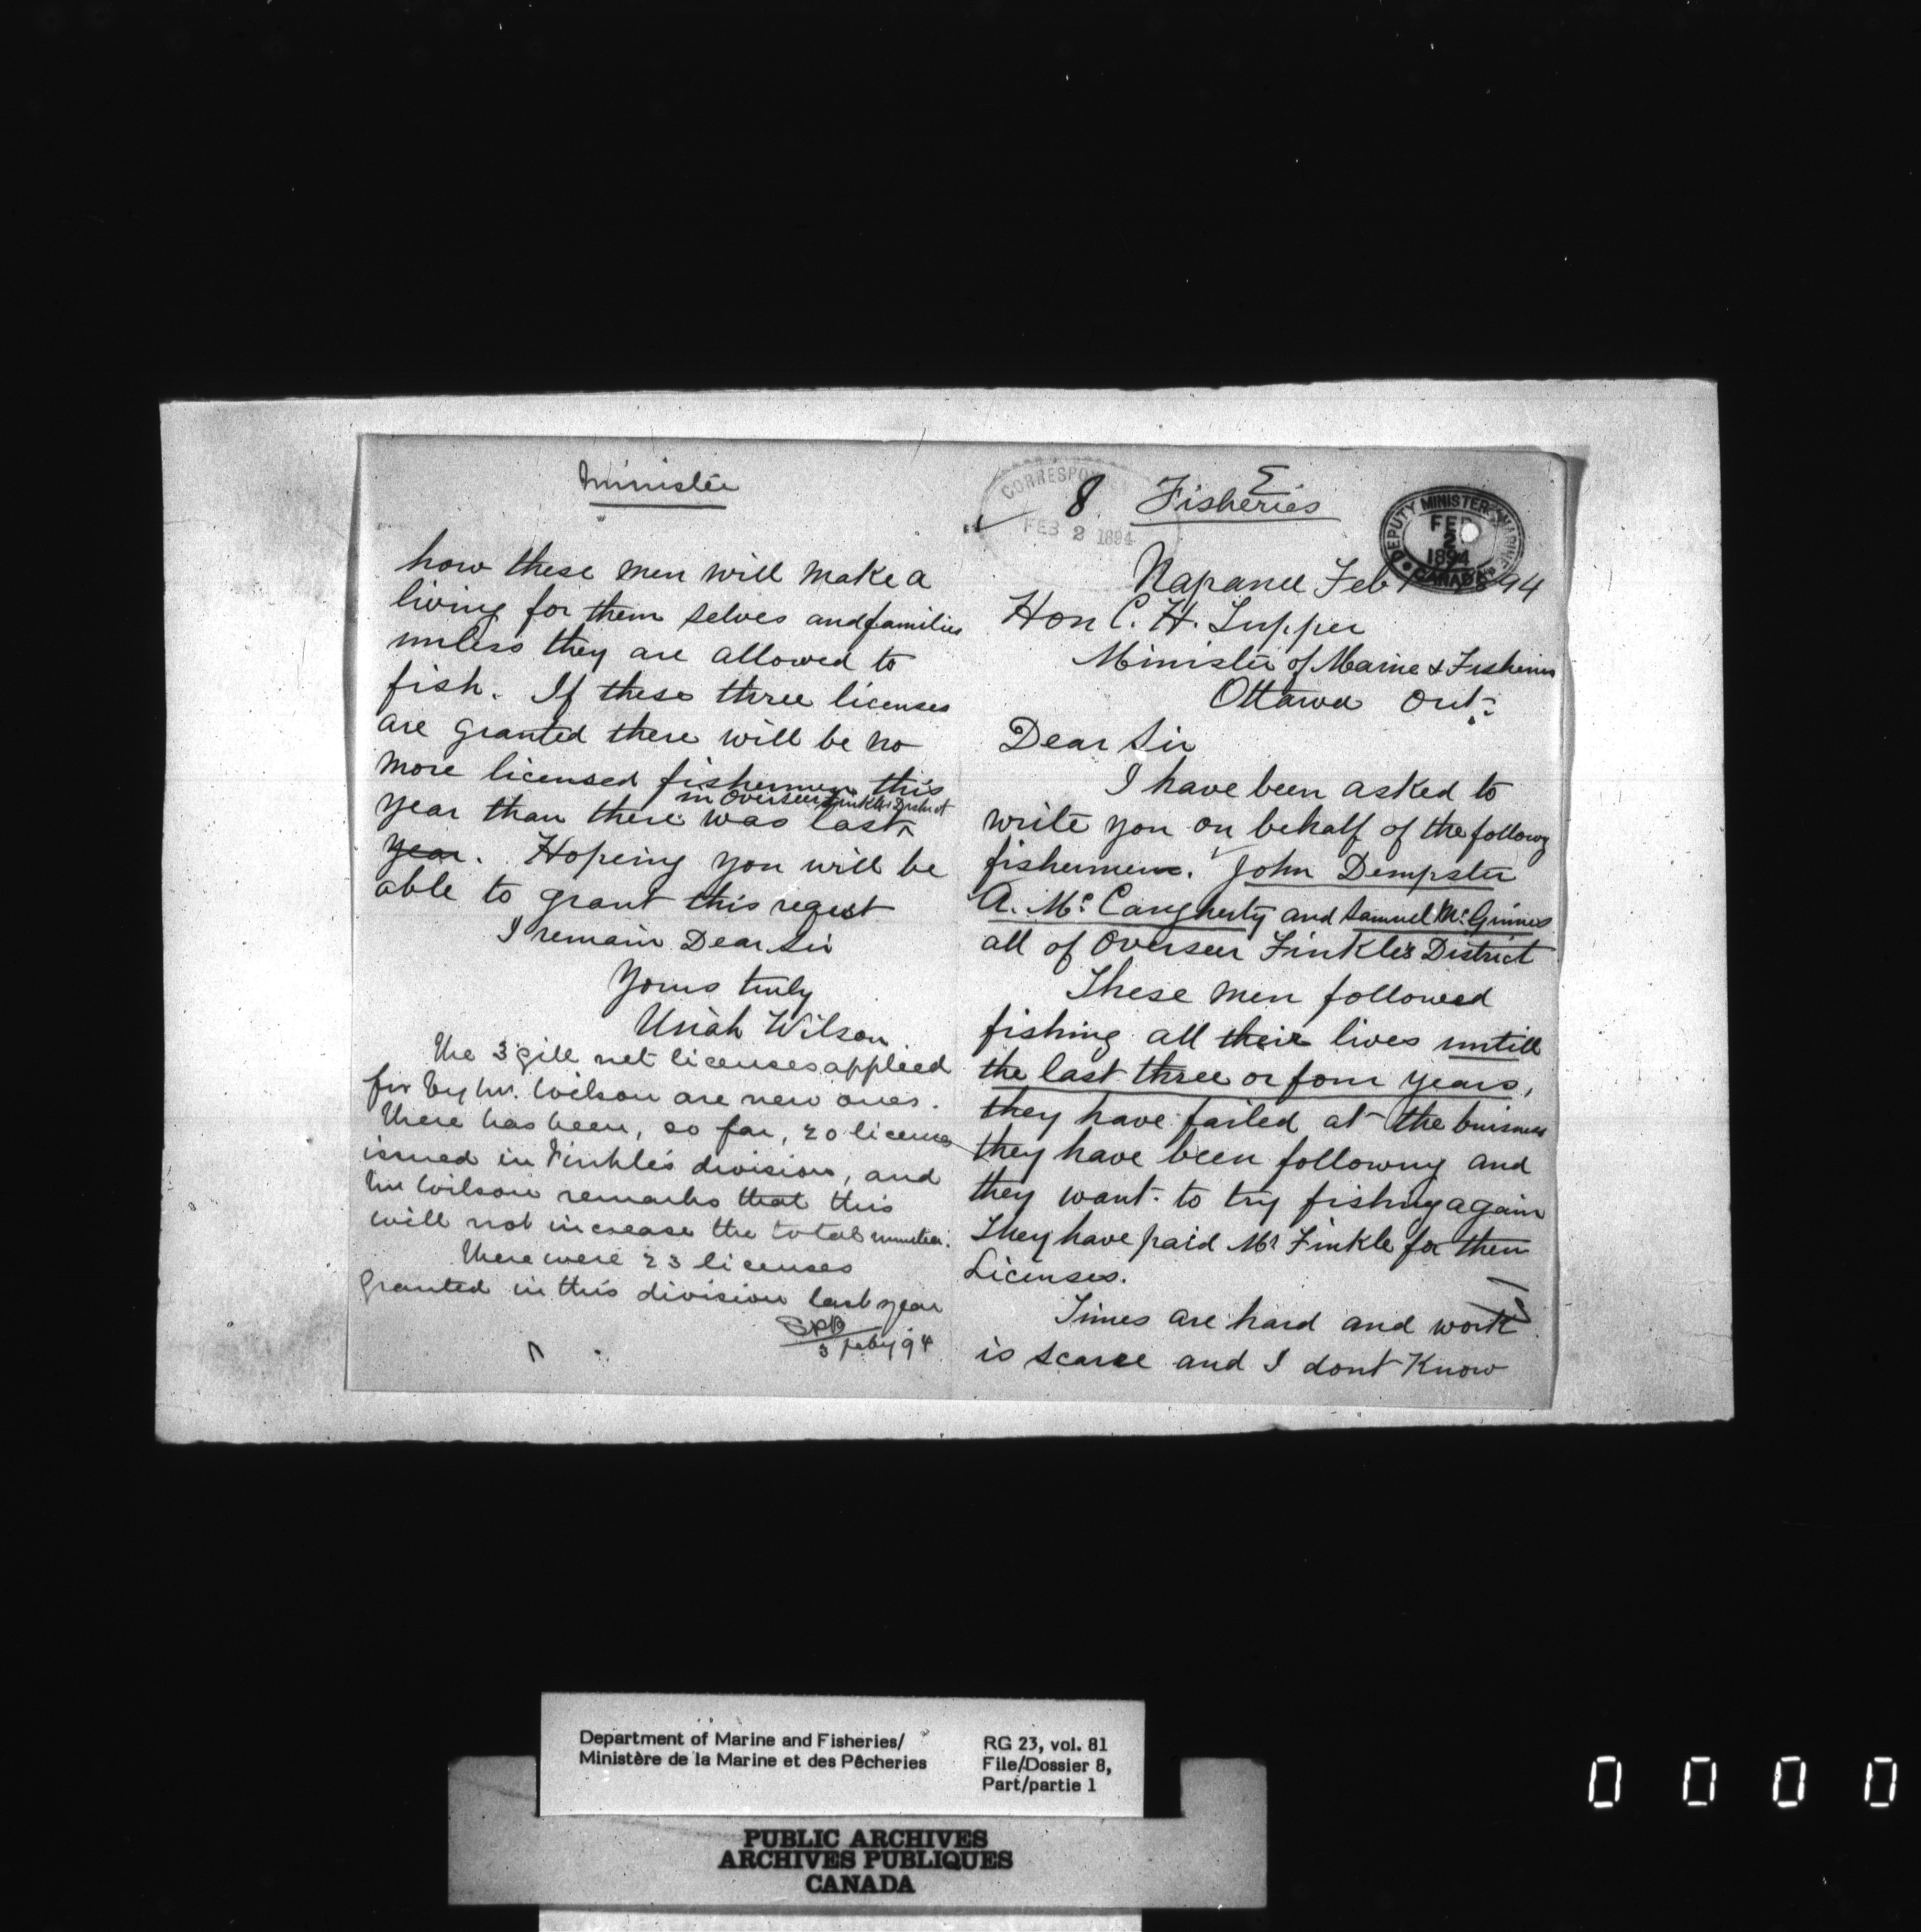 8 Fisheries
CORRESPON
FEB 2 1894
DEPUTY MINISTER OF MARINE
FEB
2
1894
CANADA
Napanee Feb 1 1894
Hon C. H. Tupper
Minister of Marine & Fisheries
Ottawa Ont:
Dear Sir
I have been asked to
write you on behalf of the followg
fishermen. John Dempster
A. Mc Caugherty and Samuel McGinnes
all of Overseer Finkle's District
These men followed
fishing all their lives untill
the last three or four years,
they have failed at the buisness
they have been following and
they want to try fishing again
They have paid Mr Finkle for then
Licenses.
Times are hard and work
is scarce and I dont Know
Minister
how these men will make a
living for them selves and families
unless they are allowed to
fish. If these three licenses
are granted there will be no
more licensed fishermen this
in Overseer Finkles District
year than there was last
year. Hopeing you will be
able to grant this request
I remain Dear Sir
Yours truly
Uriah Wilson
The 3 gill net licenses applied
for by Mr. Wilson are new ones.
There has been, so far, 20 licenses
issued in Finkle's division, and
Mr Wilson remarks that this
will not increase the total number.
There were 23 licenses
granted in this division last year
3 Feby 94
Department of Marine and Fisheries/
Ministère de la Marine et des Pêcheries
RG 23, vol. 81
File/Dossier 8,
Part/partie 1
PUBLIC ARCHIVES
ARCHIVES PUBLIQUES
CANADA
0 0 0 0